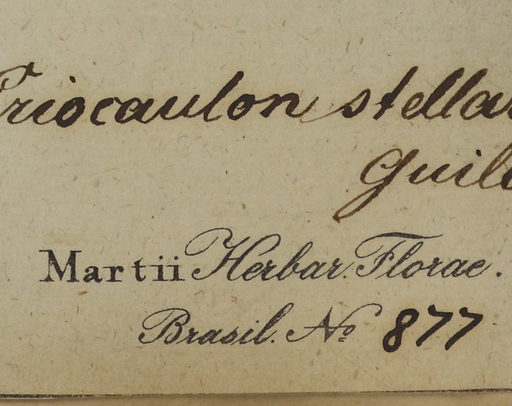 Eriocaulon stellar
Guill
Martii Herbar. Florae.
Brasil. No 877